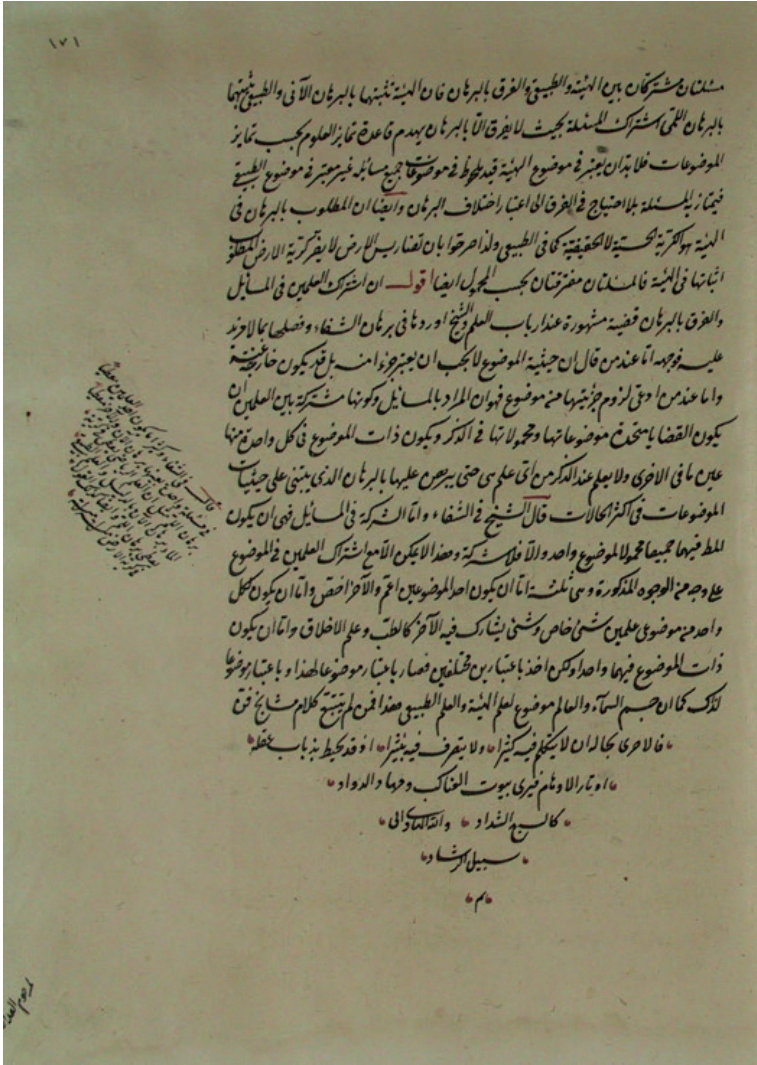 ١٧١
مسئلتان مشتركتان بين الهيئة والطبيعي والفرق بالبرهان فان الهيئة تثبتها بالبرهان الآني والطبيعي يثبتها
بالبرهان اللمي اشتراك المسئلة بحيث لا يفرق الا بالبرهان يهدم قاعدة تمايز العلوم بحسب تمايز
الموضوعات فلا بد ان يعتبر في موضوع الهيئة قيد ملحوظ في موضوعات جميع مسائله غير معتبر في موضوع الطبيعي
فيمتاز المسئلة بلا احتياج في الفرق الى اعتبار اختلاف البرهان وايضا ان المطلوب بالبرهان في
الهيئة هو الكرية الحسية لا الحقيقية كما في الطبيعي ولذا صرحوا بان تضاريس الارض لا يضر كرية الارض المطلوب
اثباتها في الهيئة فالمسئلتان مفترقتان بحسب المحمول ايضا اقول ان اشتراك العلمين في المسائل
والفرق بالبرهان قضية مشهورة عند ارباب العلم والشيخ اوردها في برهان الشفاء وفصلها بما لا مزيد
عليه فوجهه اما عند من قال ان حيثية الموضوع لا يجب ان يعتبر جزءا منه بل قد يكون خارجة
واما عند من ادعى لزوم جزئيتها من موضوع فهو ان المراد بالمسائل وكونها مشتركة بين العلمين ان
يكون القضايا متحدة موضوعاتها ومحمولاتها في الذكر ويكون ذات الموضوع في كل واحدة منها
عين ما في الاخرى ولا يعلم عند الذكر من اي علم هي حتى يبرهن عليها بالبرهان الذي يبتنى على حيثيات
الموضوعات في اكثر الحالات قال الشيخ في الشفاء واما الشركة في المسائل فهي ان يكون
المط فيهما جميعا محمولا لموضوع واحد والا فلا شركة وهذا لا يمكن الا مع اشتراك العلمين في الموضوع
على وجه من الوجوه المذكورة وهي ثلثة اما ان يكون احد الموضوعين اعم والآخر اخص واما ان يكون لكل
واحد من موضوعي علمين شئ خاص وشئ يشارك فيه الآخر كالطب وعلم الاخلاق واما ان يكون
ذات الموضوع فيهما واحدا ولكن اخذ باعتبارين مختلفين فصار باعتبار موضوعا لهذا وباعتبار موضوعا
لذلك كما ان جسم السماء والعالم موضوع لعلم الهيئة والعلم الطبيعي هذا فمن لم يتتبع كلام مشايخ فن
فالاحرى بحاله ان لا يتكلم فيه كثيرا ولا يتصرف فيه نثيرا اذ قد يحيط بذباب عقله
اوتار الاوهام فيرى بيوت العناكب ومهاد الدواد
كالسبع الشداد والله الهادي الى
سبيل الرشاد
م